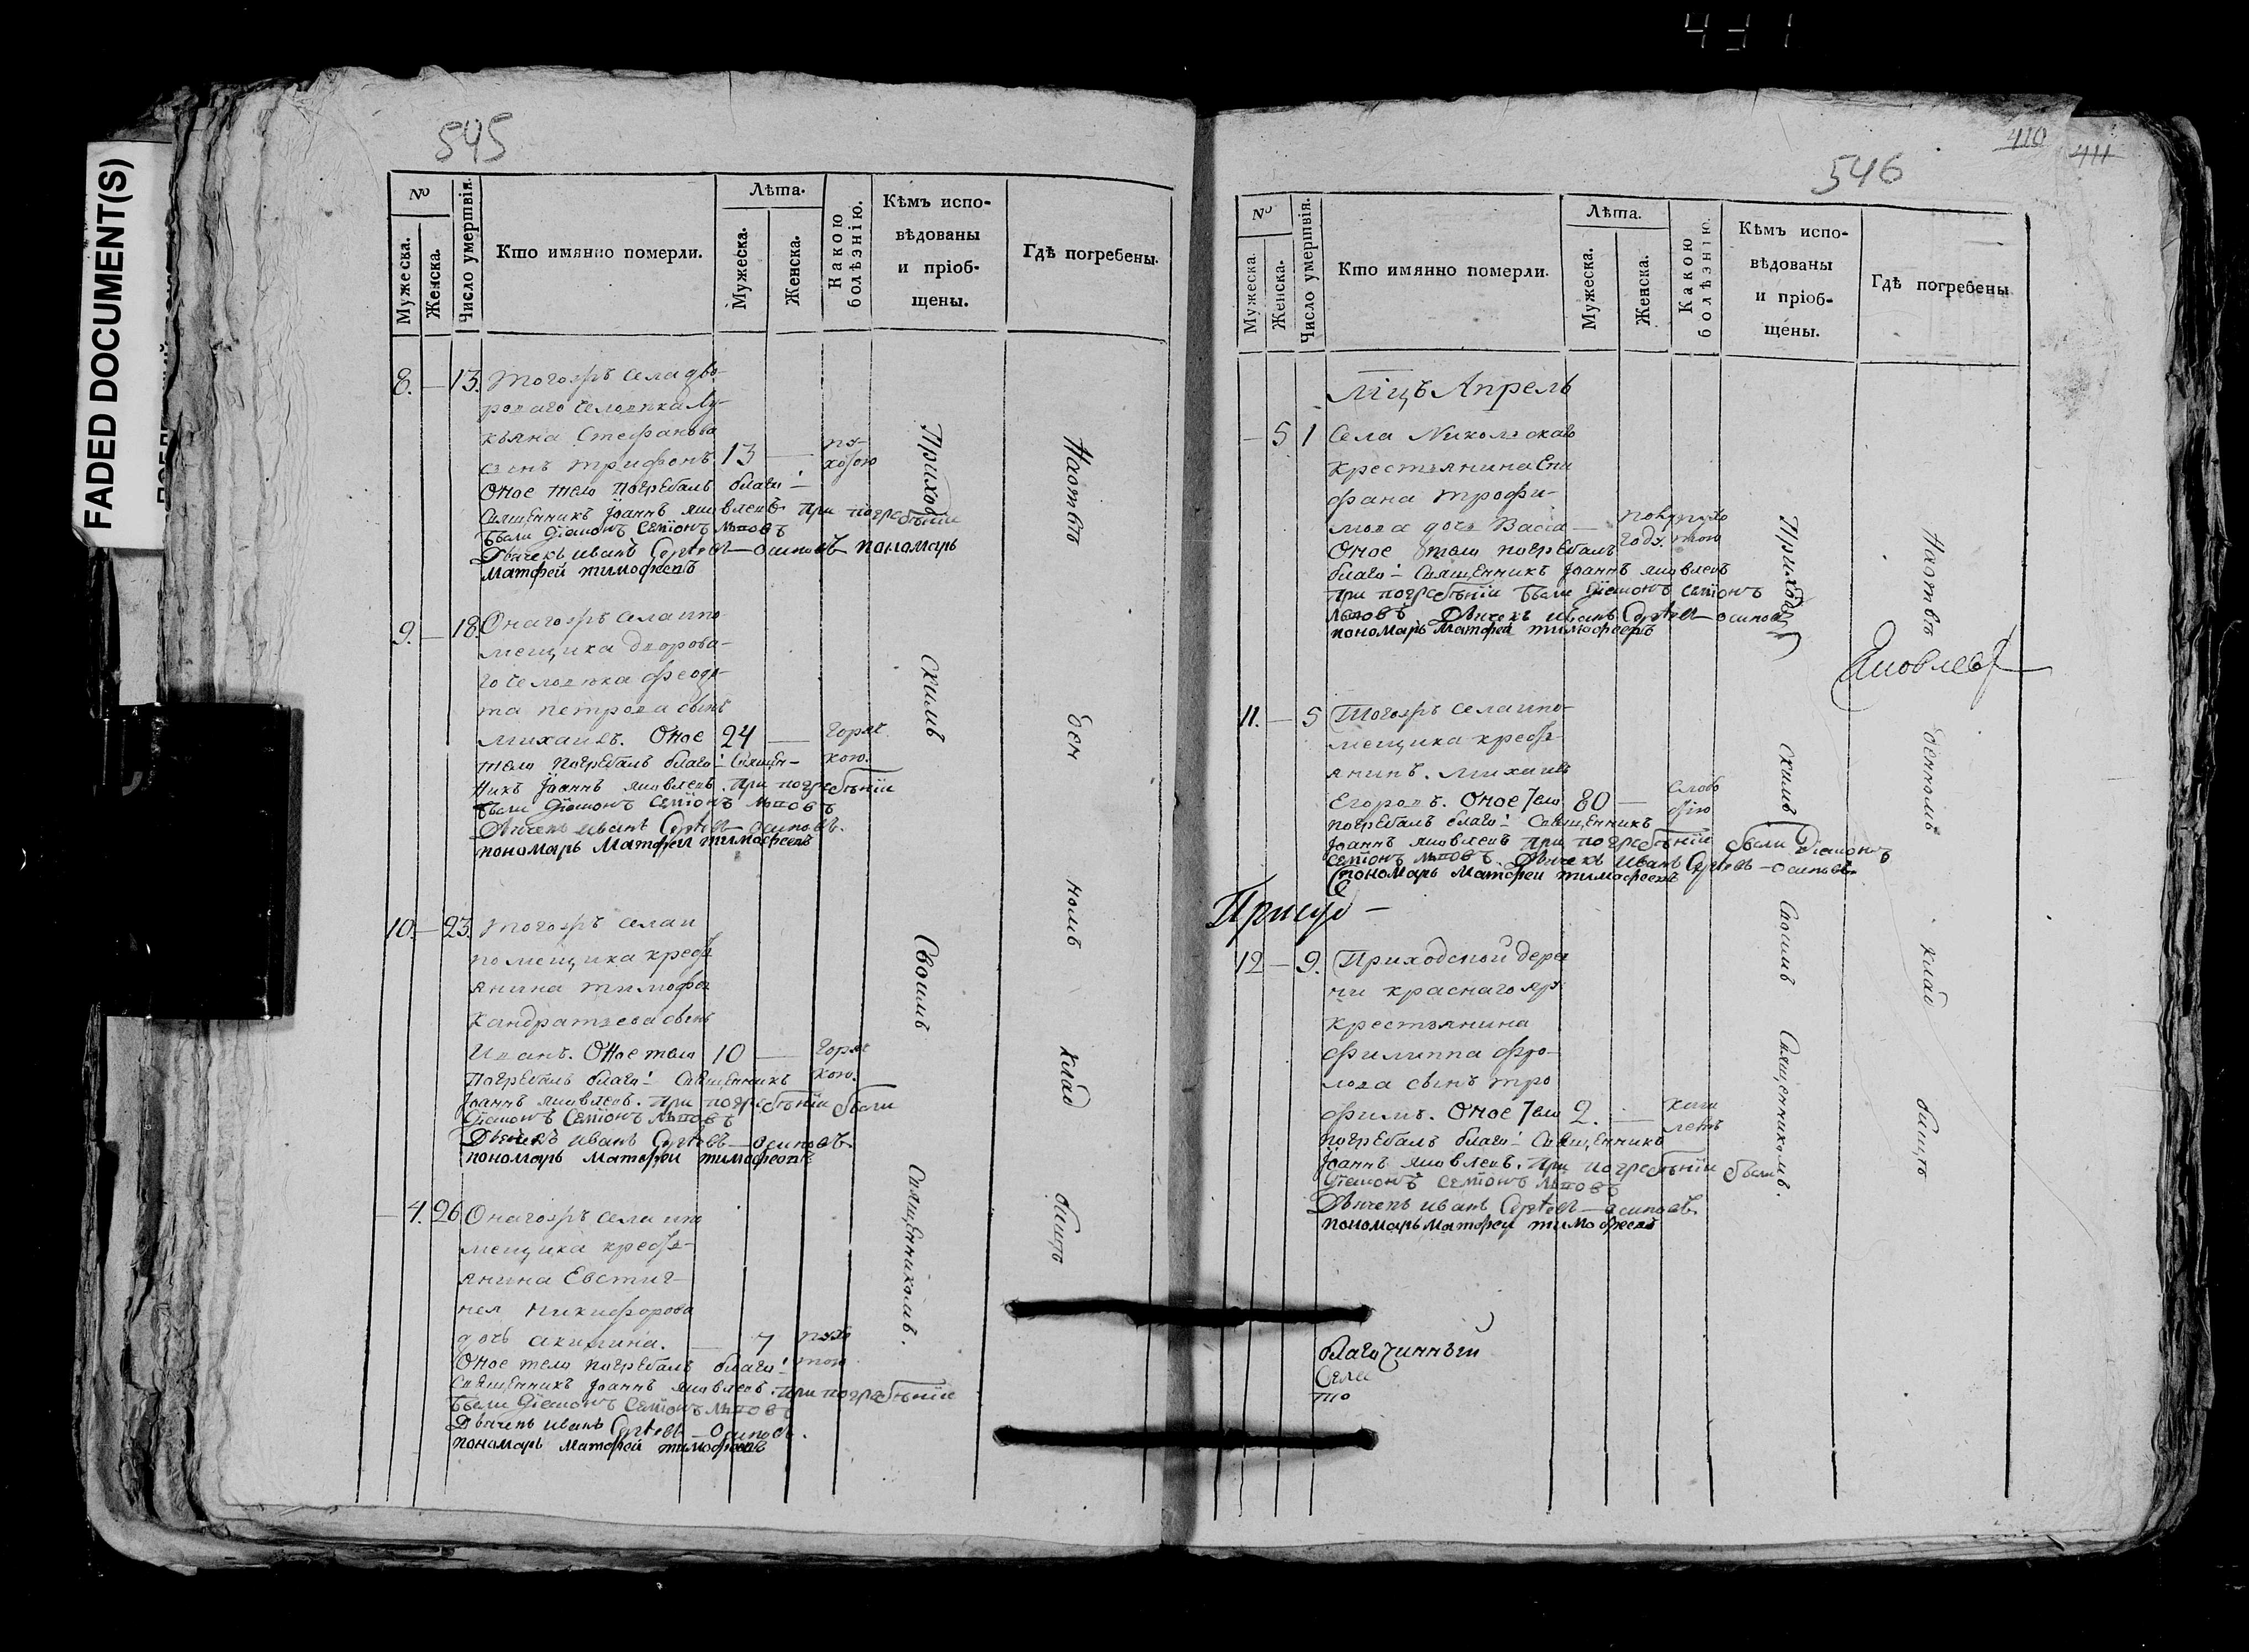 FADED DOCUMENT(S)
545
№
Мужеска.
Женска.
Число умертвія.
Кто имянно померли.
Лѣта.
Мужеска.
Женска.
Какою болѣзнію.
Кѣмъ испо-
вѣдованы
и пріоб-
щены.
Гдѣ погребены.
8. — 13. Тогожъ села дво-
роваго человѣка Лу-
кьяна Стефанова
сынъ Трифонъ 13 —
Оное тело погребалъ благо:
Священникъ Іоаннъ Яковлевъ. При погребѣніи
были Діаконъ Семіонъ Львовъ
Дьячекъ Иванъ Сергѣевъ Осиповъ пономарь
Матфей Тимофеевъ
9. — 18. Онагожъ села и по
мещика дворова-
го человѣка Феодо-
та Петрова сынъ
Михаилъ. Оное 24 — горяч
тело погребалъ благо: Священ- кою.
никъ Іоаннъ Яковлевъ. При погребѣніи
были Діаконъ Семіонъ Львовъ
Дьячекъ Иванъ Сергѣевъ Осиповъ.
пономарь Матфей Тимофеевъ
10. — 23. Тогожъ села и
помещика кресть
янина Тимофея
Кандратьева сынъ
Иванъ. Оное тело 10 — горяч
Погребалъ благо: Священникъ кою.
Іоаннъ Яковлевъ. При погребѣніи были
Діаконъ Семіонъ Львовъ
Дьячекъ Иванъ Сергѣевъ Осиповъ.
пономарь Матфей Тимофеевъ
— 4. 26 Онагожъ села и по
мещика кресть-
янина Евстиг-
нея Никифорова
дочь Акилина. — 7
Оное тело погребалъ благо:
Священникъ Іоаннъ Яковлевъ. При погребѣніи
были Діаконъ Семіонъ Львовъ
Дьячекъ Иванъ Сергѣевъ Осиповъ.
пономарь Матфей Тимофеевъ
Приход
скимъ
Своимъ
Священникомъ.
На отвѣ
ден
номъ
клад
бищѣ
410
411
546
№
Мужеска.
Женска.
Число умертвія.
Кто имянно померли.
Лѣта.
Мужеска.
Женска.
Какою болѣзнію.
Кѣмъ испо-
вѣдованы
и пріоб-
щены.
Гдѣ погребены
Мцъ Апрель
— 5 1 Села Никольскаго
крестьянина Епи
фана Трофи-
мова дочь Васса —
Оное тело погребалъ
благо: Священникъ Іоаннъ Яковлевъ
при погребѣніи были Діаконъ Семіонъ
Львовъ Дьячекъ Иванъ Сергѣевъ Осиповъ
пономарь Матфей Тимофеевъ
Яковлевъ
11. — 5 Тогожъ села и по-
мещика кресть-
янинъ. Михаилъ
Егоровъ. Оное тело 80 —
погребалъ благо: Священникъ
Іоаннъ Яковлевъ при погребѣніи были Діаконъ
Семіонъ Львовъ. Дьячекъ Иванъ Сергѣевъ Осиповъ
пономарь Матфей Тимофеевъ
12 — 9. Приходской дерев
ни Краснаго яру
крестьянина
Филиппа Фро-
лова сынъ Тро
фимъ. Оное тело 2. —
погребалъ благо: Священникъ
Іоаннъ Яковлевъ. При погребѣніи были
Діаконъ Семіонъ Львовъ
Дьячекъ Иванъ Сергѣевъ Осиповъ
пономарь Матфей Тимофеевъ
Приход
скимъ
Своимъ
Священникомъ.
На отвѣ
денномъ
клад
бищѣ
благочинный
Села
то